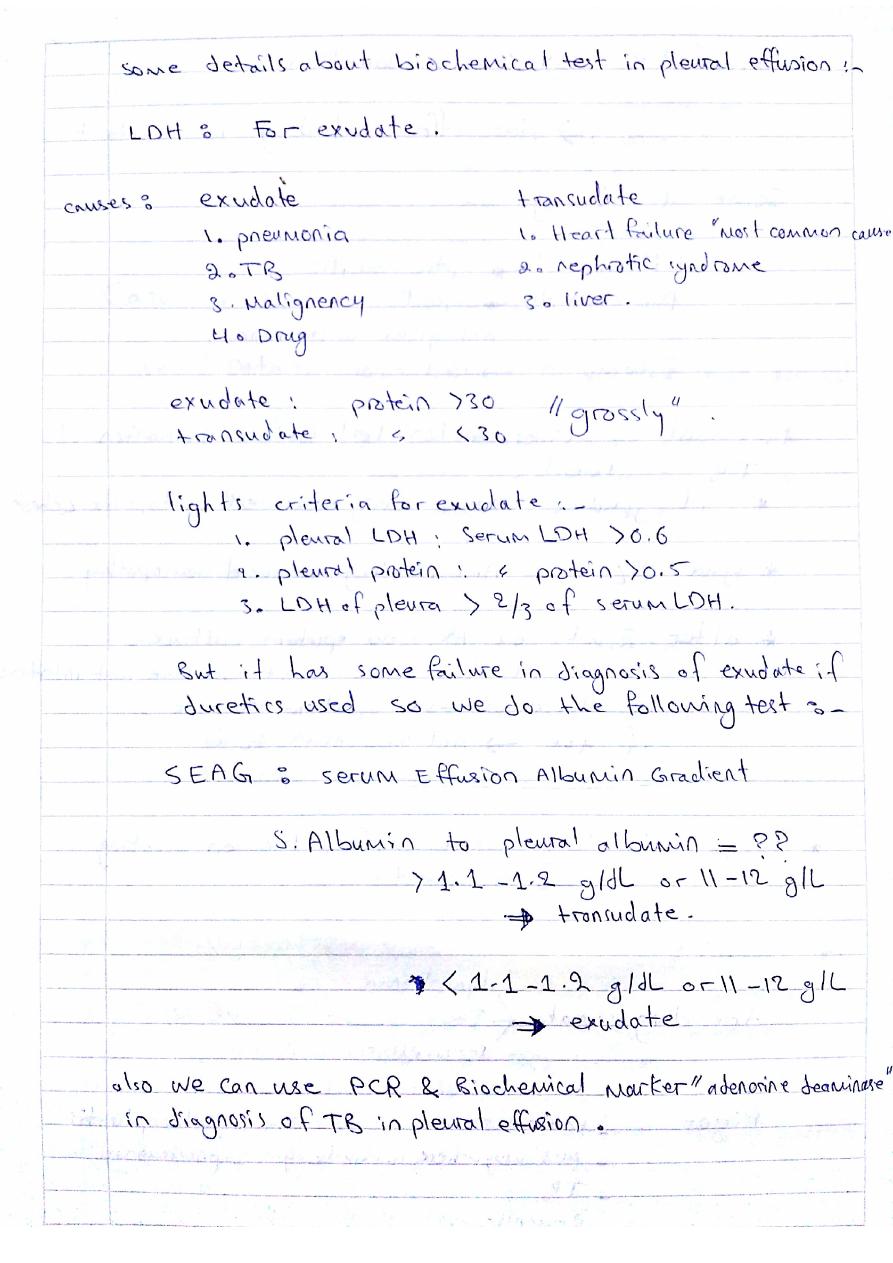 some details about biochemical test in pleural effusion :-
LDH : For exudate .
causes : exudate transudate
1. pneumonia 1. Heart failure "Most common cause
2. TB 2. nephrotic syndrome
3. Malignency 3. liver .
4. Drug
exudate : protein >30 "grossly" .
transudate : " <30
lights criteria for exudate :-
1. pleural LDH : serum LDH >0.6
2. pleural protein : " protein >0.5
3. LDH of pleura > 2/3 of serum LDH .
But it has some failure in diagnosis of exudate if
duretics used so we do the following test :-
SEAG : serum Effusion Albumin Gradient
S. Albumin to pleural albumin = ??
> 1.1 - 1.2 g/dL or 11-12 g/L
⇒ transudate .
< 1.1 - 1.2 g/dL or 11-12 g/L
⇒ exudate
also we can use PCR & Biochemical Marker "adenorine deaminase"
in diagnosis of TB in pleural effusion .